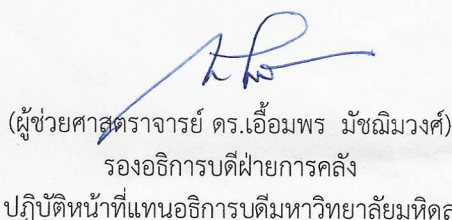 (ผู้ช่วยศาสตราจารย์ ดร.เอื้อมพร  มัชฌิมวงศ์)
รองอธิการบดีฝ่ายการคลัง
ปฏิบัติหน้าที่แทนอธิการบดีมหาวิทยาลัยมหิดล